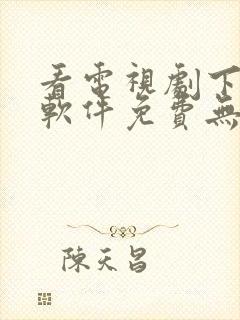 看電視劇下
軟件免費無
陳天昌